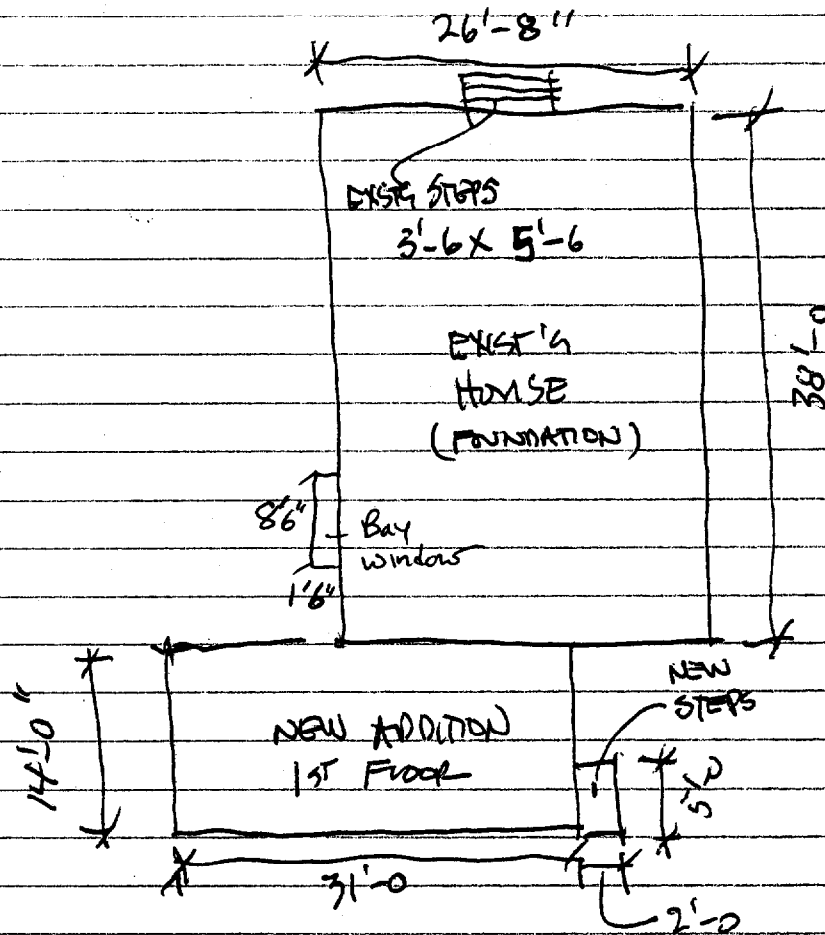 26'-8"
EXST'G STEPS
3'-6 X 5'-6
38'-0
EXIST'G
HOUSE
(FOUNDATION)
8'6"
Bay
window
1'6"
NEW
STEPS
NEW ADDITION
1ST FLOOR
14'-0"
5'-0
31'-0
2'-0